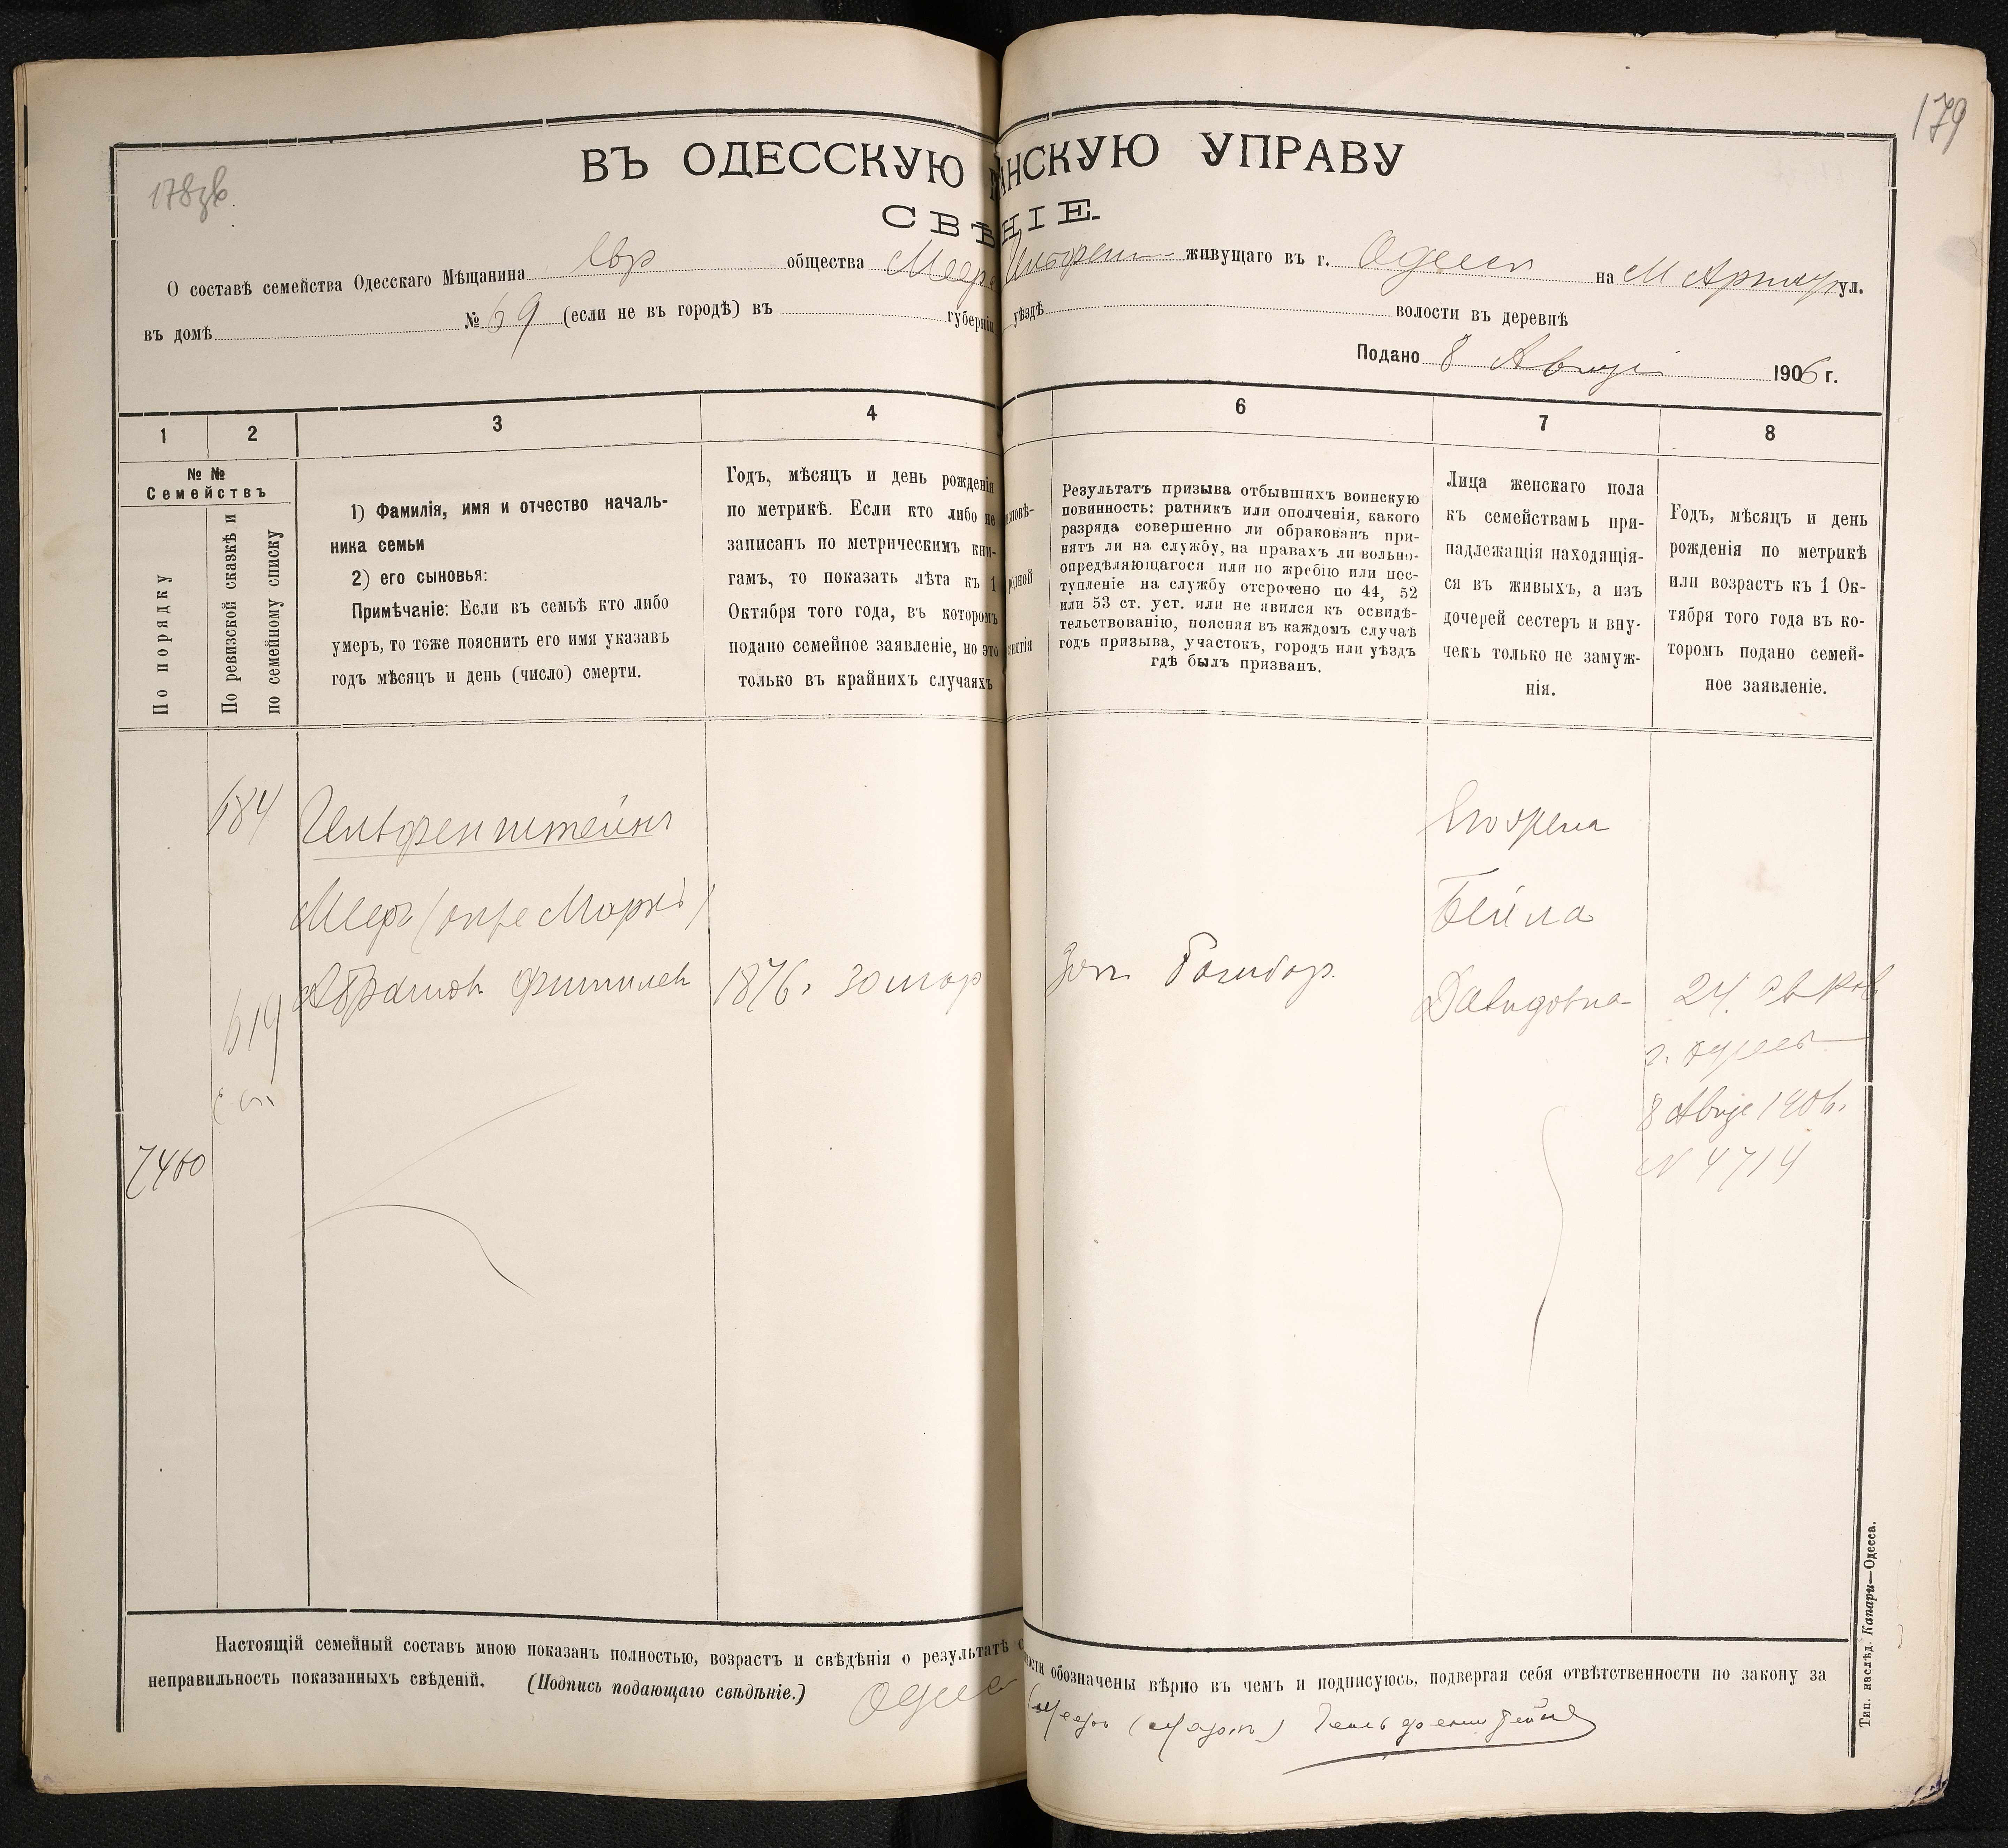 179
178 зв.
ВЪ ОДЕССКУЮ АНСКУЮ УПРАВУ
СВѢ НІЕ.
О составѣ семейства Одесскаго Мѣщанина Евр общества Меера живущаго въ г. Одессе на М Арнаут ул.
въ домѣ № 69 (если не въ городѣ) въ губерніи уѣздѣ волости въ деревнѣ
Подано 8 Августа 1906 г.
1 2 3 4 6 7 8
№ №
Семействъ
По порядку
По ревизской сказкѣ и
по семейному списку
1) Фамилія, имя и отчество началь-
ника семьи
2) его сыновья:
Примѣчаніе: Если въ семьѣ кто либо
умеръ, то тоже пояснить его имя указавъ
годъ мѣсяцъ и день (число) смерти.
Годъ, мѣсяцъ и день рожденія
по метрикѣ. Если кто либо не
записанъ по метрическимъ кни-
гамъ, то показать лѣта къ 1
Октября того года, въ которомъ
подано семейное заявленіе, но это
только въ крайнихъ случаяхъ
исповѣ-
родной
Результатъ призыва отбывшихъ воинскую
повинность: ратникъ или ополченія, какого
разряда совершенно ли обракованъ при-
нятъ ли на службу, на правахъ ли вольно-
опредѣляющагося или по жребію или пос-
тупленіе на службу отсрочено по 44, 52
или 53 ст. уст. или не явился къ освидѣ-
тельствованію, поясняя въ каждомъ случаѣ
годъ призыва, участокъ, городъ или уѣздъ
гдѣ былъ призванъ.
Лица женскаго пола
къ семействамъ при-
надлежащія находящія-
ся въ живыхъ, а изъ
дочерей сестеръ и вну-
чекъ только не замуж-
нія.
Годъ, мѣсяцъ и день
рожденія по метрикѣ
или возрастъ къ 1 Ок-
тября того года въ ко-
торомъ подано семей-
ное заявленіе.
684 Гельфенштейнъ
Меер (онже Маркъ)
Абрамов 1876. 30 мар
Бейла
Давидовна 24
619
8 Авгус 1906.
7400
№ 4714
Настоящій семейный составъ мною показанъ полностью, возрастъ и свѣдѣнія о результатѣ о ности обозначены вѣрно въ чемъ и подписуюсь, подвергая себя отвѣтственности по закону за
неправильность показанныхъ свѣденій. (Подпись подающаго свѣдѣніе.)
Меер (Марк) Гельфенштейн
Тип. наслѣд. Капари—Одесса.